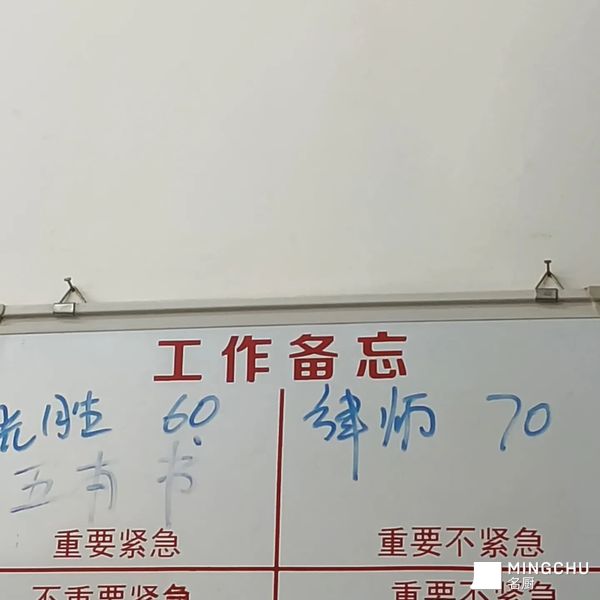 工作备忘
胜 60
律师 70
重要紧急
重要不紧急
不重要紧急
重要不紧急
MINGCHU
名厨